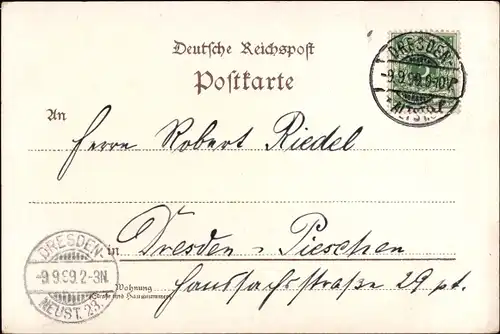 Deutsche Reichspost
Postkarte
DRESDEN-
-9.9.99.9-10V.
ALTST.
An
Herrn Robert Riedel
in
Dresden-Pieschen
Wohnung
(Straße und Hausnummer)
Hanssachsstraße 29 pt.
DRESDEN-
-9.9.99.2-3N.
NEUST. 23.